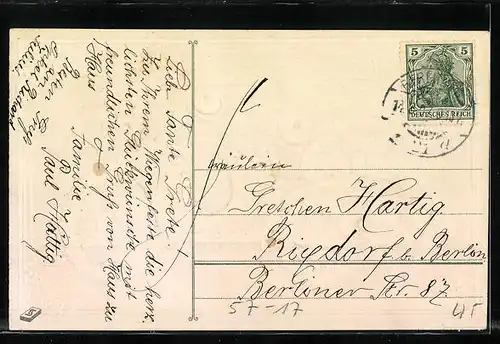 Lieb Tante Grete!
Zu Ihrem Wiegenfeste die herz
lichsten Glückwünsche mit
freundlichen Gruß von Haus zu
Haus
Familie
Paul Hartig
Besten Gruß
5 5
DEUTSCHES REICH
Fräulein
Gretchen Hartig
Rixdorf b. Berlin
Berliner Str. 87
57-17
45